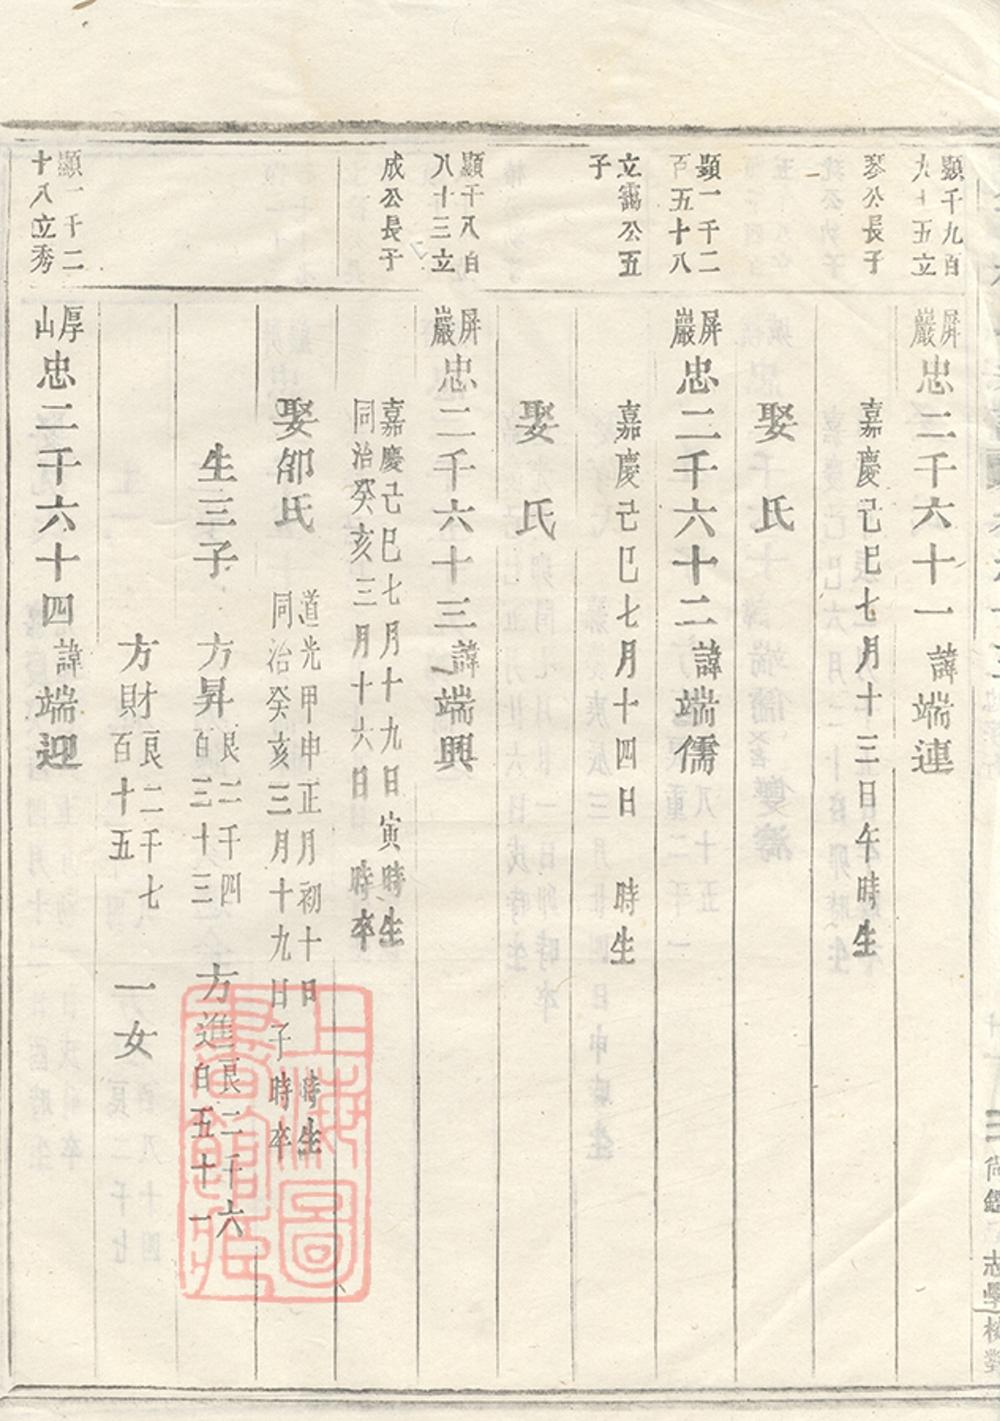 顯千九百九十五立
琴公長子
屏巖忠二千六十一諱端連
嘉慶己巳七月十三日午時生
娶 氏
顯一千二百五十八
立靄公五子
屏巖忠二千六十二諱端儒
嘉慶己巳七月十四日 時生
娶 氏
顯千八百八十三立
成公長子
屏巖忠二千六十三諱端興
嘉慶己巳七月十九日寅時生
同治癸亥三月十六日 時卒
娶邵氏
道光甲申正月初十日 時生
同治癸亥三月十九日子時卒
生三子 方昇良二千四百三十三 方進良二千六百五十一
方財良二千七百十五 一女
顯一千二十八立秀
厚山忠二千六十四諱端迎
上海圖書館藏